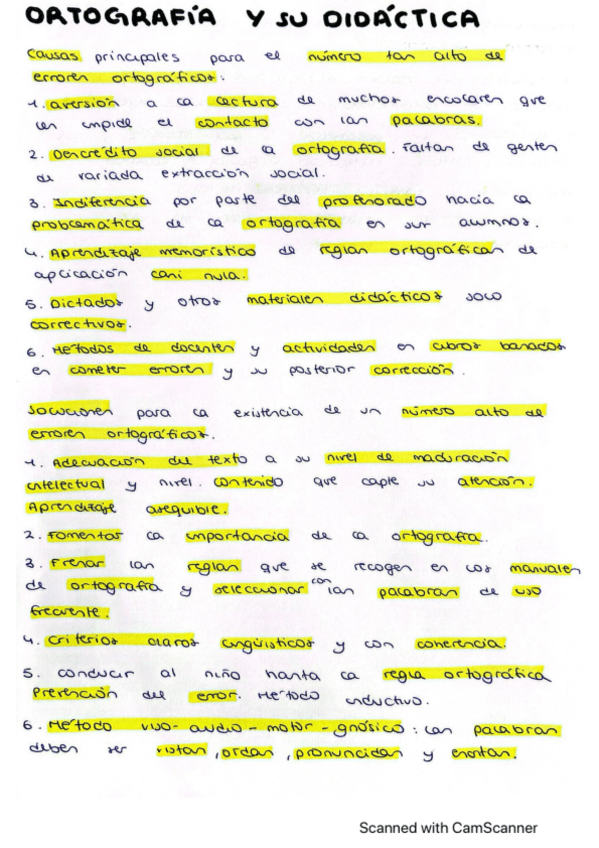 ORTOGRAFÍA Y SU DIDÁCTICA
Causas principales para el número tan alto de
errores ortográficos:
1. aversión a la lectura de muchos escolares que
les impide el contacto con las palabras.
2. Descrédito social de la ortografía. Faltan de gentes
de variada extracción social.
3. Indiferencia por parte del profesorado hacia la
problemática de la ortografía en sus alumnos.
4. Aprendizaje memorístico de reglas ortográficas de
aplicación casi nula.
5. Dictados y otros materiales didácticos solo
correctivos.
6. Métodos de docentes y actividades en libros basados
en cometer errores y su posterior corrección.
Soluciones para la existencia de un número alto de
errores ortográficos.
1. Adecuación del texto a su nivel de maduración
intelectual y nivel. Contenido que capte su atención.
Aprendizaje asequible.
2. Fomentar la importancia de la ortografía.
3. Frenar las reglas que se recogen en los manuales
de ortografía y seleccionar con las palabras de uso
frecuente.
4. Criterios claros lingüísticos y con coherencia.
5. conducir al niño hasta la regla ortográfica
Prevención del error. Método inductivo.
6. Método viso-audio-motor-gnósico: las palabras
deben ser vistas, oídas, pronunciadas y escritas.
Scanned with CamScanner